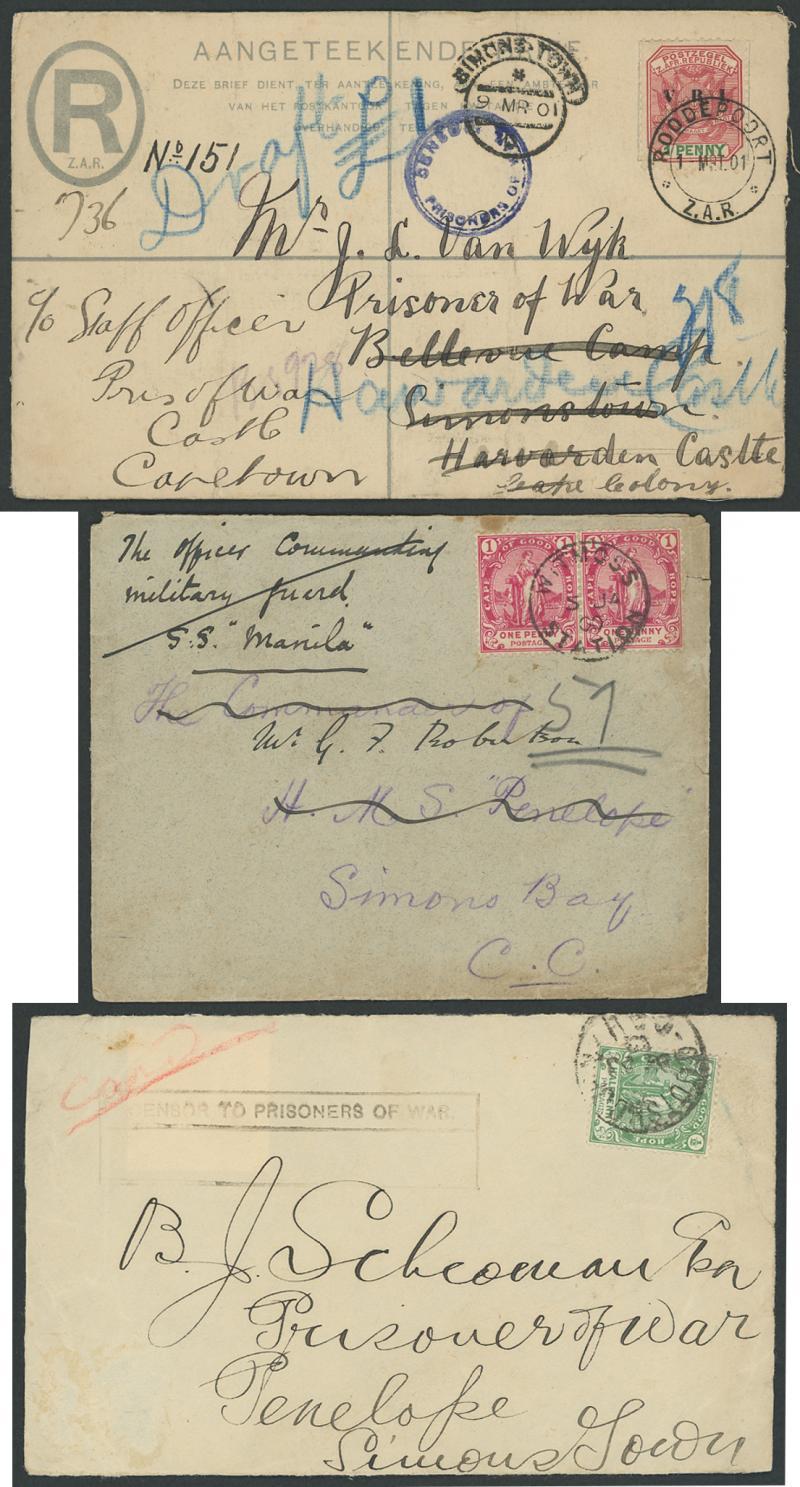 AANGETEEKENDE
DEZE BRIEF DIENT TER
VAN HET POSTKANTOOR TEGEN
OVERHANDIGD TE
R
Z.A.R.
No 151
Draft £1
736
SIMONS TOWN
9 MR 01
PRISONERS OF
POSTZEGEL
Z. AFR. REPUBLIEK
V.R.I.
PENNY
RODDEPOORT
1 MRT.01
Z.A.R.
Mr. J. L. Van Wyk
Prisoner of War
Bellevue Camp
Simonstown
Harvarden Castle
Cape Colony.
c/o Staff Officer
Pris of War
Castle
Capetown
Harvarden Castle
The Officer Commanding
military guard
S.S. "Manila"
1 CAPE OF GOOD HOPE 1
ONE PENNY
POSTAGE
1 CAPE OF GOOD HOPE 1
ONE PENNY
POSTAGE
The Commander of
57
Mr G. F. Robertson
H. M. S. "Penelope"
Simons Bay
C. C.
CENSOR TO PRISONERS OF WAR.
HOPE
B. J. Schoeman Esq
Prisoner of War
Penelope
Simons Town